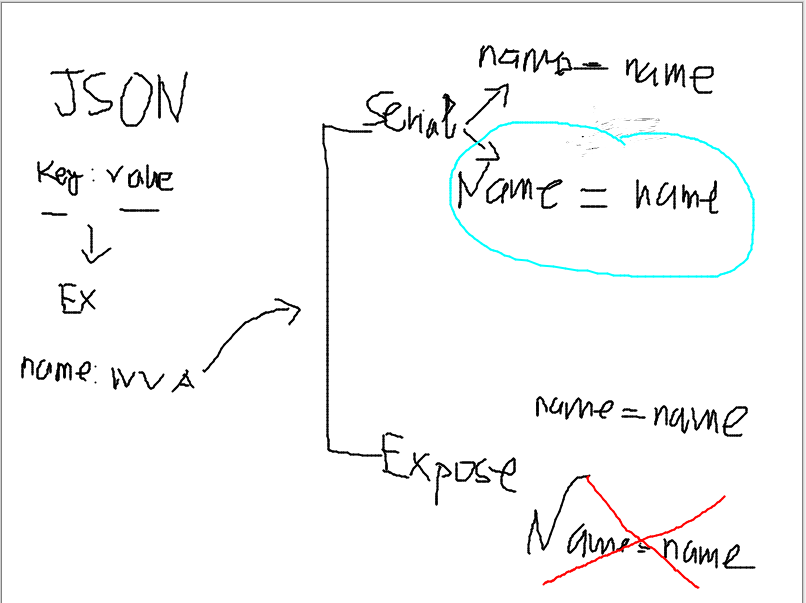 JSON
Key: value
Ex
name: WVA
Serial
name = name
Name = name
Expose
name = name
Name = name